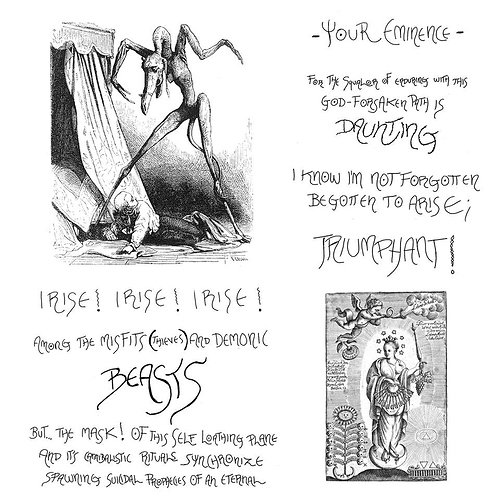 -YOUR EMINENCE-
FOR THE SQUALOR OF ENDURING WITH THIS
GOD-FORSAKEN PATH IS
DAUNTING
I KNOW I'M NOT FORGOTTEN
BEGOTTEN TO ARISE;
TRIUMPHANT!
I RISE! I RISE! I RISE!
AMONG THE MISFITS (THIEVES) AND DEMONIC
BEASTS
BUT... THE MASK! OF THIS SELF LOATHING PLANE
AND ITS CABALISTIC RITUALS SYNCHRONIZE
SPAWNING SUICIDAL PROPHECIES OF AN ETERNAL